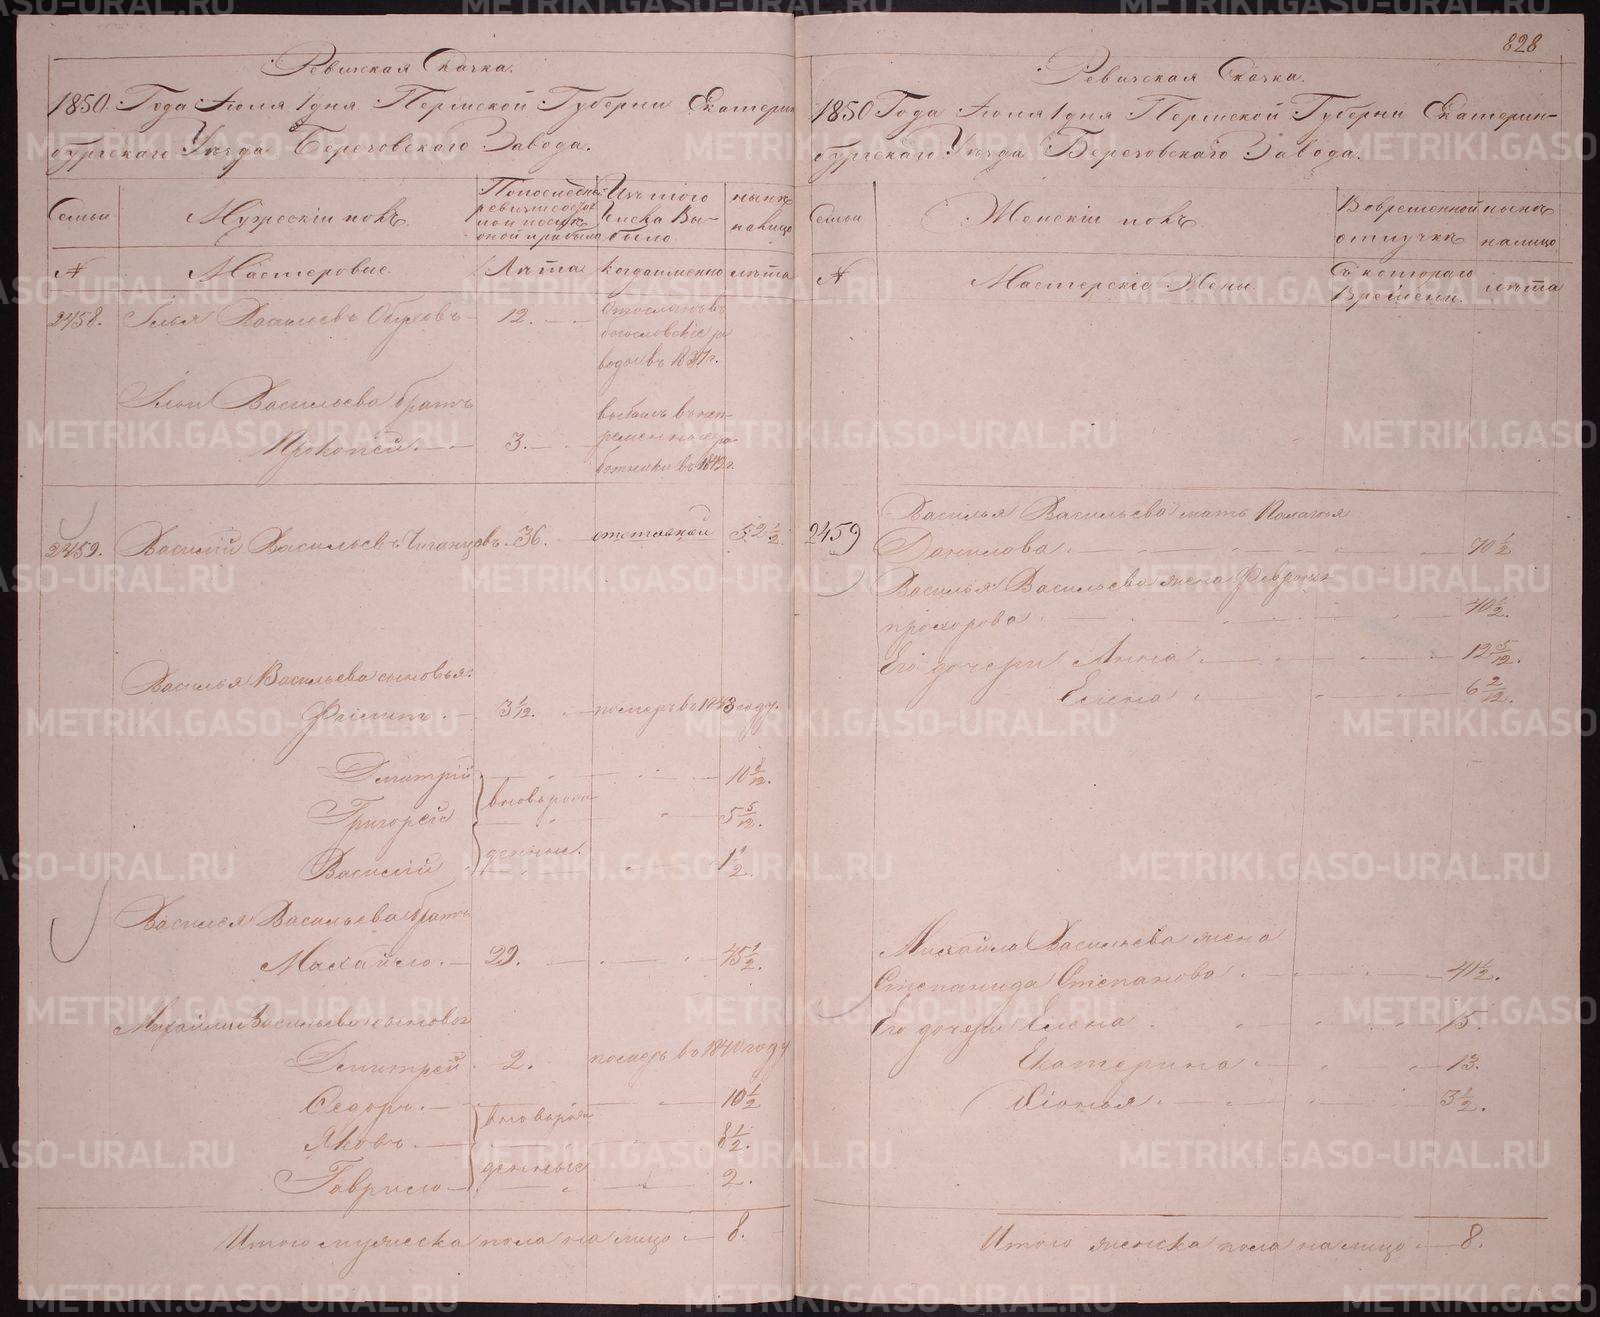 828
Ревизская Сказка.
1850 Года Июля 1 дня Пермской Губерни Екатерин
бургскаго Уѣзда Березовскаго Завода.
Семьи
Мужескіи полъ
Изъ того
числа вы-
было
нынѣ
налицо
№
Мастеровые
Лѣта
когда именно
лѣта
2458.
Илья Васильевъ
12.
богословскіе
въ 1837 г.
Ильи Васильева братъ
Прокопей.
3.
2459.
Василий Васильевъ
36.
отставной
52 1/2
Василья Васильева сыновья:
Филипъ
3 1/12.
померъ въ 1843 году.
Дмитрій
10
вноворож
Григорей
5 5/12.
денные.
Василий
1 1/2.
Василья Васильева братъ
Михайло.
29.
45 1/2.
Михайлы Васильева сыновья
Дмитрей
2.
померъ въ 1840 году
Федоръ.
10 1/2
вноворож
Яковъ
8 1/2.
денные
Гаврило
2.
Итого мужеска пола на лицо
8.
Ревизская Сказка.
1850 Года Июля 1 дня Пермской Губерни Екатерин-
бургскаго Уѣзда Березовскаго Завода.
Семьи
Женскіи полъ
Во временной
отлучкѣ
нынѣ
налицо
№
Мастерскіе Жены
Съ котораго
Времени.
лѣта
2459
Василья Васильева мать Палагья
Данилова
70 1/2
Василья Васильева жена Февронья
прохорова
40 1/2.
Его дочери Анна
12 5/12.
Елена
6 2/12.
Михайла Васильева жена
Степанида Степанова
41 1/2.
Его дочери Елена
15.
Екатерина
13.
3 1/2.
Итого женска пола на лицо
8.
METRIKI.GASO-URAL.RU